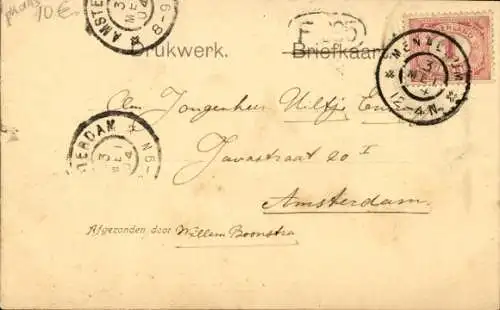 10 €
AMSTE
3
MEI
04
8-9
Drukwerk.
Briefkaar
MENALDUM
3
MEI
4
12-4N.
Aan Jongenheer Uiltje
Javastraat 20 I
Amsterdam.
TERDAM
3
MEI
04
Afgezonden door Willem Boonstra